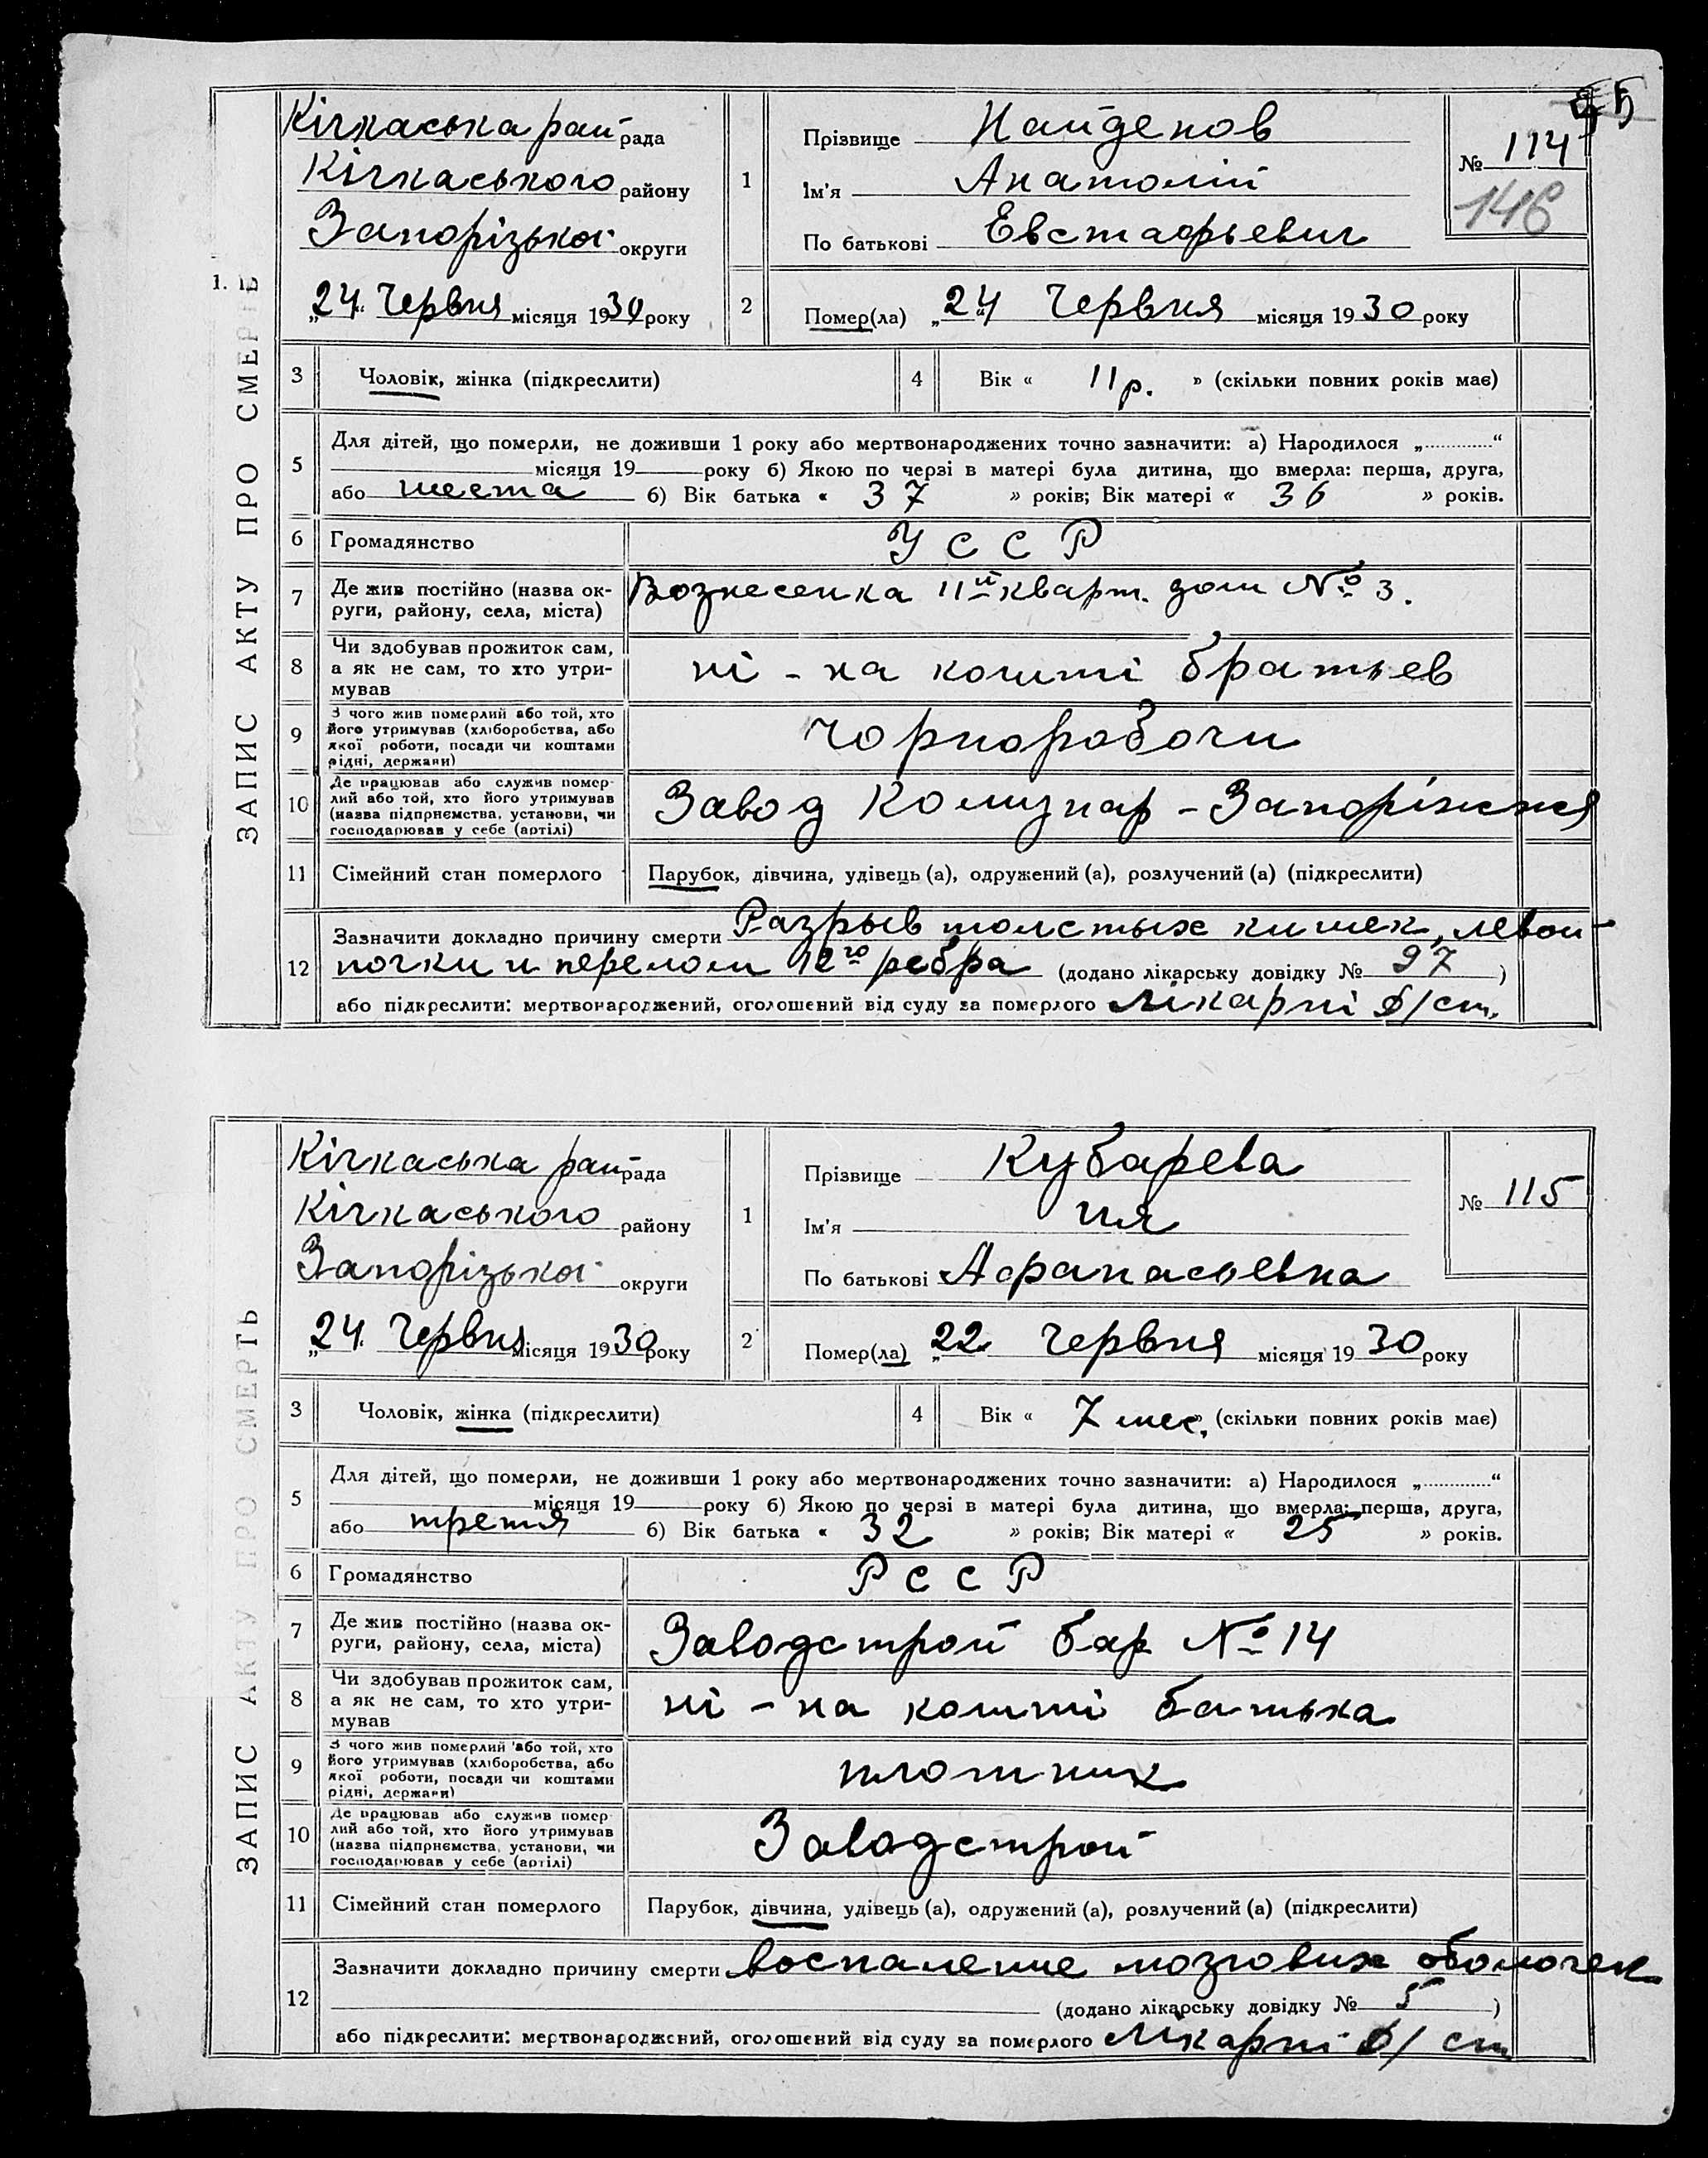 Кічкаська рай рада
Кічкаського району
Запорізької округи
„24“ Червня місяця 1930 року
1
Прізвище Найденов
Ім'я Анатолий
По батькові Евстафьевич
№ 114
146
2 Помер(ла) „24“ Червня місяця 1930 року
ЗАПИС АКТУ ПРО СМЕРТЬ
3 Чоловік, жінка (підкреслити)
4 Вік « 11 р. » (скільки повних років має)
5 Для дітей, що померли, не доживши 1 року або мертвонароджених точно зазначити: а) Народилося „............“
місяця 19 року б) Якою по черзі в матері була дитина, що вмерла: перша, друга,
або шеста б) Вік батька « 37 » років; Вік матері « 36 » років.
6 Громадянство У С С Р
7 Де жив постійно (назва ок-
руги, району, села, міста)
Вознесенка 11й кварт. дом № 3.
8 Чи здобував прожиток сам,
а як не сам, то хто утри-
мував
ні - на кошті братьев
9 З чого жив померлий або той, хто
його утримував (хліборобства, або
якої роботи, посади чи коштами
рідні, держави)
чорнорабочи
10 Де працював або служив помер-
лий або той, хто його утримував
(назва підприємства, установи, чи
господарював у себе (артілі)
Завод Комунар - Запоріжжя
11 Сімейний стан померлого Парубок, дівчина, удівець (а), одружений (а), розлучений (а) (підкреслити)
12 Зазначити докладно причину смерти Разрыв толстых кишек, левой
почки и перелом 12го ребра (додано лікарську довідку № 97 )
або підкреслити: мертвонароджений, оголошений від суду за померлого Лікарні
Кічкаська рай рада
Кічкаського району
Запорізької округи
„24“ Червня місяця 1930 року
1
Прізвище Кубарева
Ім'я Ия
По батькові Афанасьевна
№ 115
2 Помер(ла) „22“ Червня місяця 1930 року
ЗАПИС АКТУ ПРО СМЕРТЬ
3 Чоловік, жінка (підкреслити)
4 Вік « 7 мес. » (скільки повних років має)
5 Для дітей, що померли, не доживши 1 року або мертвонароджених точно зазначити: а) Народилося „............“
місяця 19 року б) Якою по черзі в матері була дитина, що вмерла: перша, друга,
або третя б) Вік батька « 32 » років; Вік матері « 25 » років.
6 Громадянство Р С С Р
7 Де жив постійно (назва ок-
руги, району, села, міста)
Заводстрой бар № 14
8 Чи здобував прожиток сам,
а як не сам, то хто утри-
мував
ні - на кошті батька
9 З чого жив померлий або той, хто
його утримував (хліборобства, або
якої роботи, посади чи коштами
рідні, держави)
плотник
10 Де працював або служив помер-
лий або той, хто його утримував
(назва підприємства, установи, чи
господарював у себе (артілі)
Заводстрой
11 Сімейний стан померлого Парубок, дівчина, удівець (а), одружений (а), розлучений (а) (підкреслити)
12 Зазначити докладно причину смерти воспаление мозгових оболочек
(додано лікарську довідку № 5 )
або підкреслити: мертвонароджений, оголошений від суду за померлого Лікарні